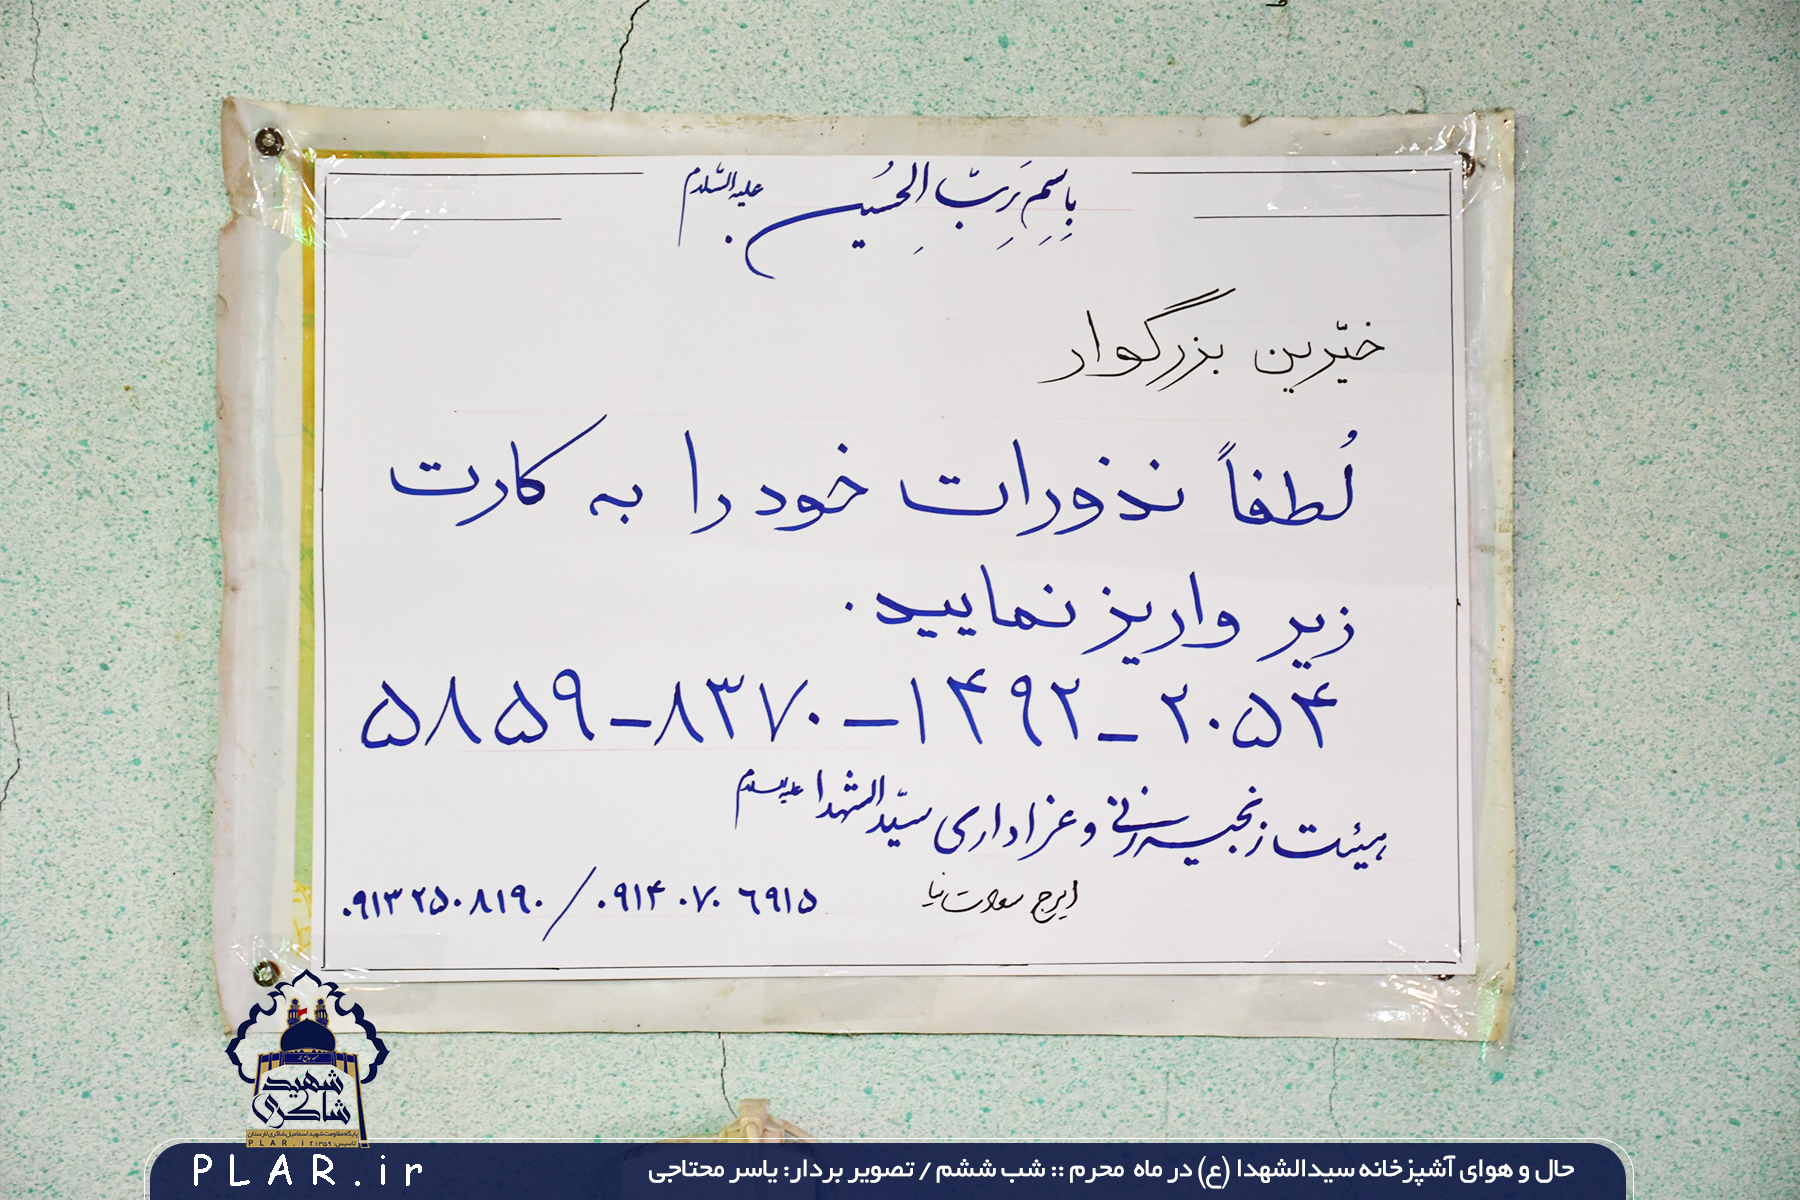 بِاسمِ رَبِّ الحُسین علیه السّلام
خیّرین بزرگوار
لُطفاً نذورات خود را به کارت
زیر واریز نمایید.
۵۸۵۹-۸۳۷۰-۱۴۹۲-۲۰۵۴
هیئت زنجیرزنی و عزاداری سیّدالشهدا علیه السلام
ایرج سعادت نیا ۰۹۱۳۲۵۰۸۱۹۰/۰۹۱۴۰۷۰۶۹۱۵
شهید
شاکری
پایگاه مقاومت شهید اسماعیل شاکری لارستان
PLAR.ir تاسیس: ۱۳۵۹
PLAR.ir
حال و هوای آشپزخانه سیدالشهدا (ع) در ماه محرم :: شب ششم / تصویر بردار: یاسر محتاجی